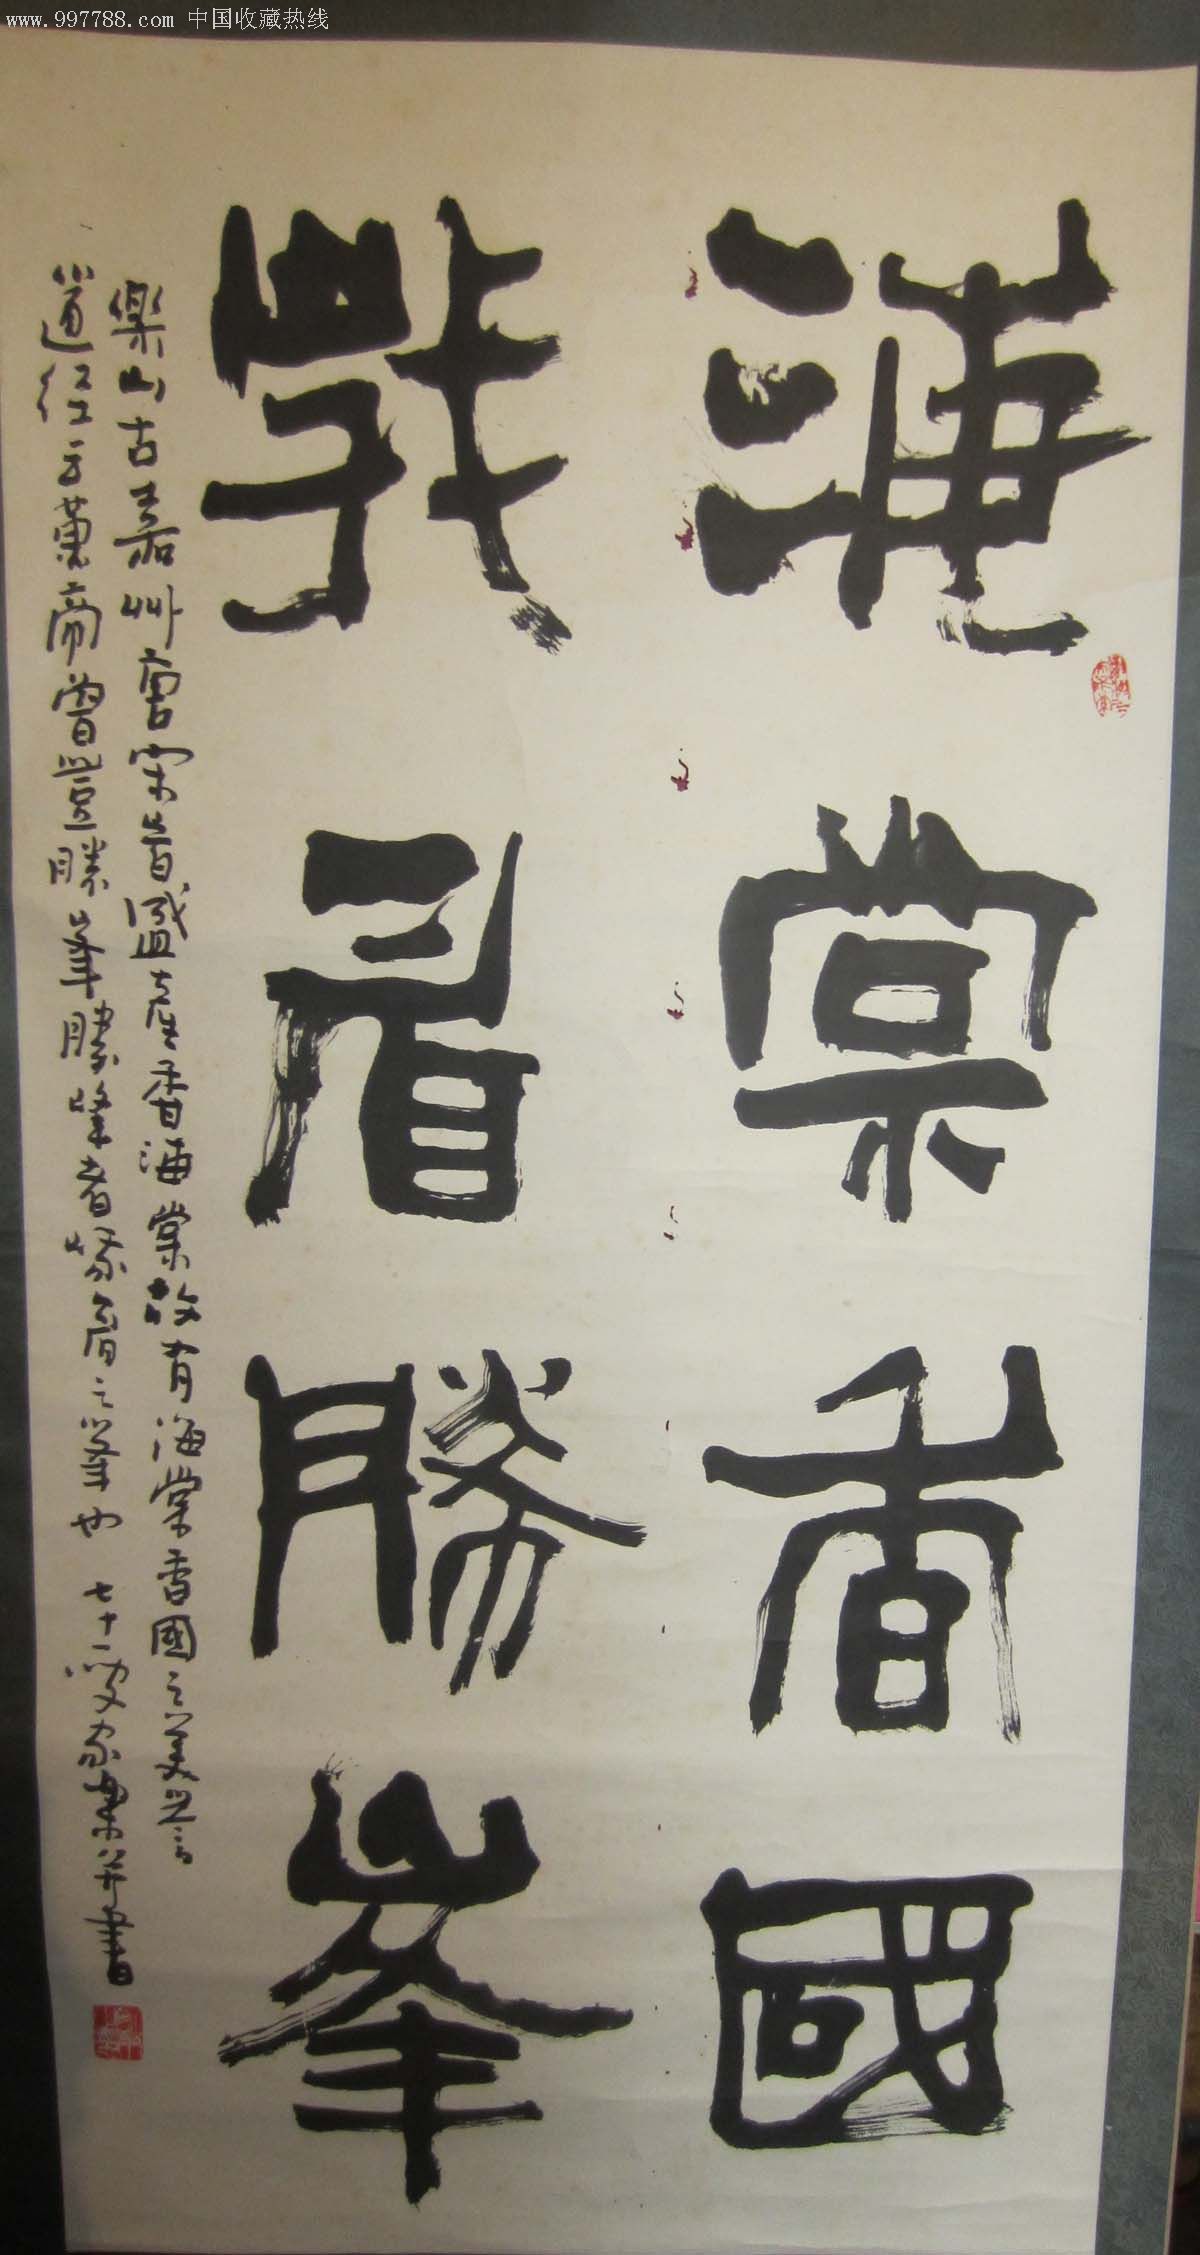 www.997788.com 中国收藏热线
海棠香國
峨眉勝峯
樂山古嘉州唐宋皆盛產香海棠故有海棠香國之美譽
道经云黄帝曾登勝峯勝峯者峨眉之峯也 七十一叟家業并書